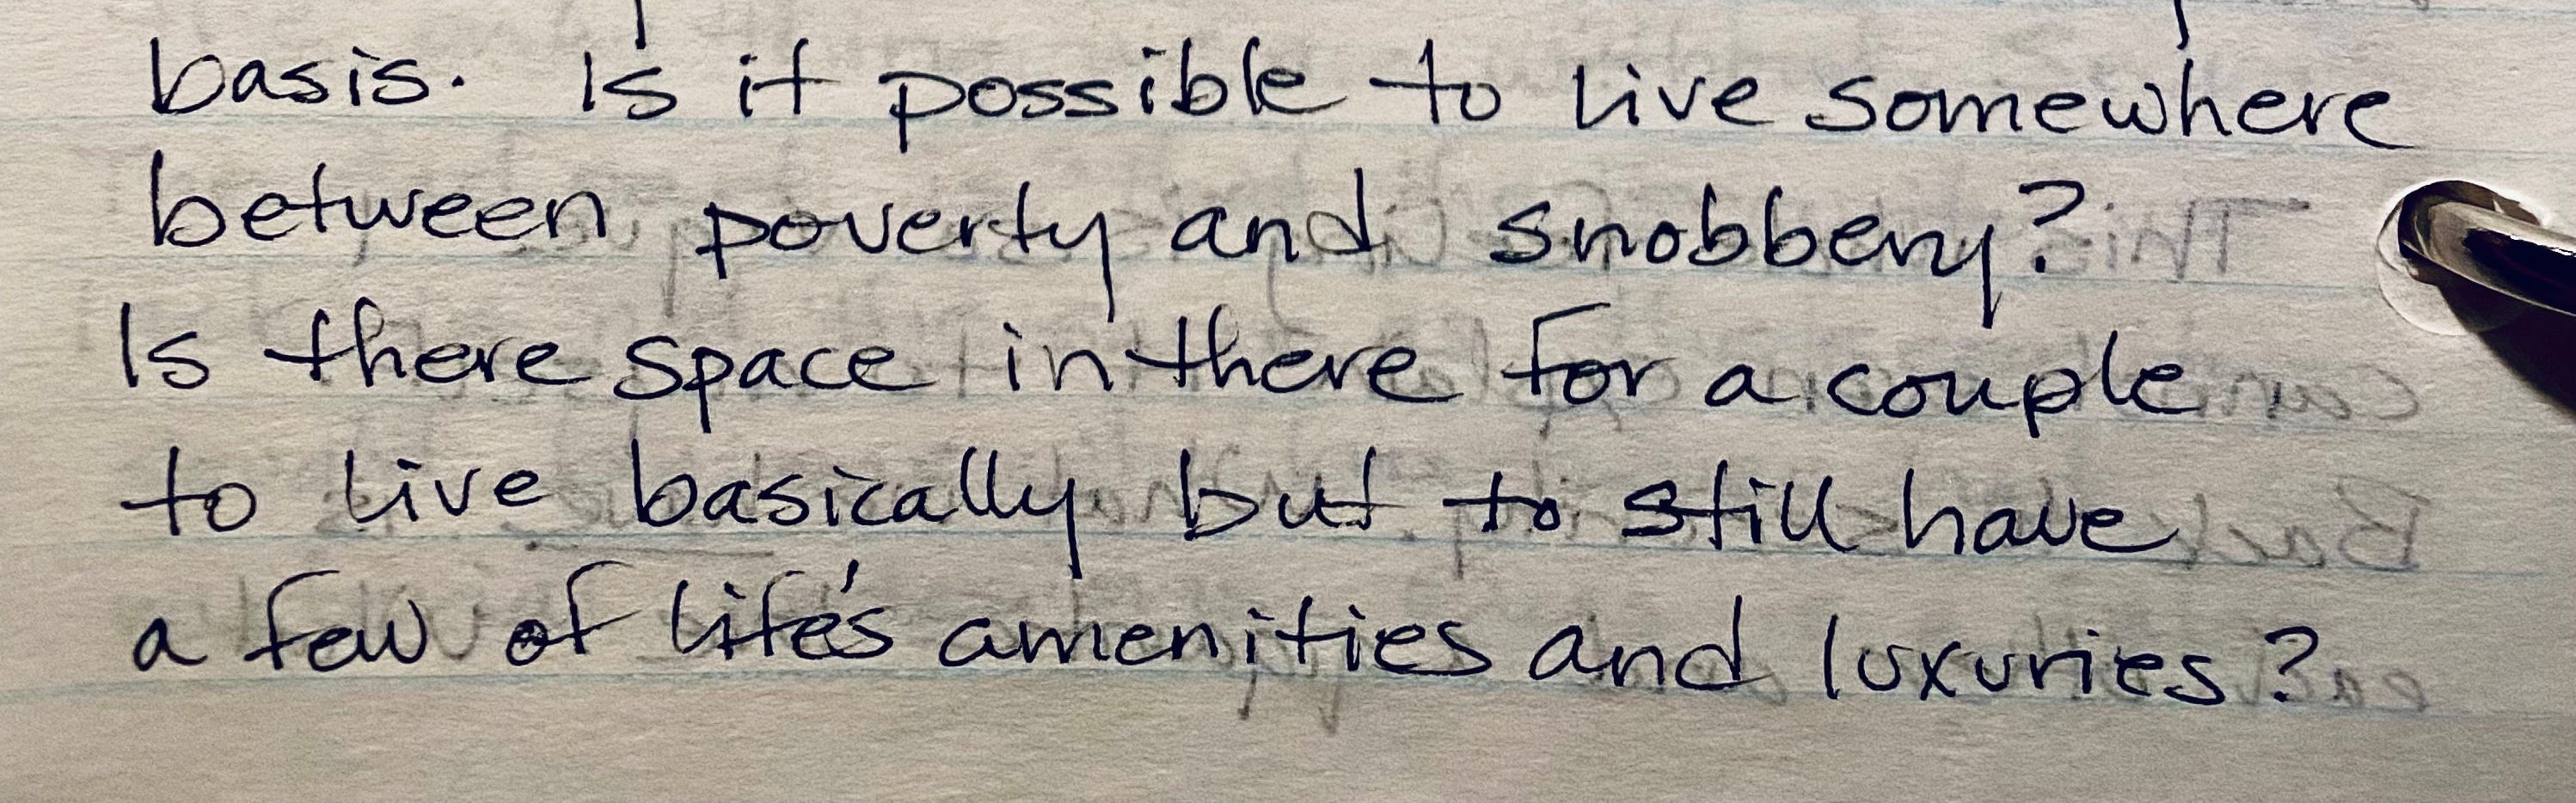 basis. Is it possible to live somewhere
between poverty and snobbery?
Is there space in there for a couple
to live basically but to still have
a few of life's amenities and luxuries?